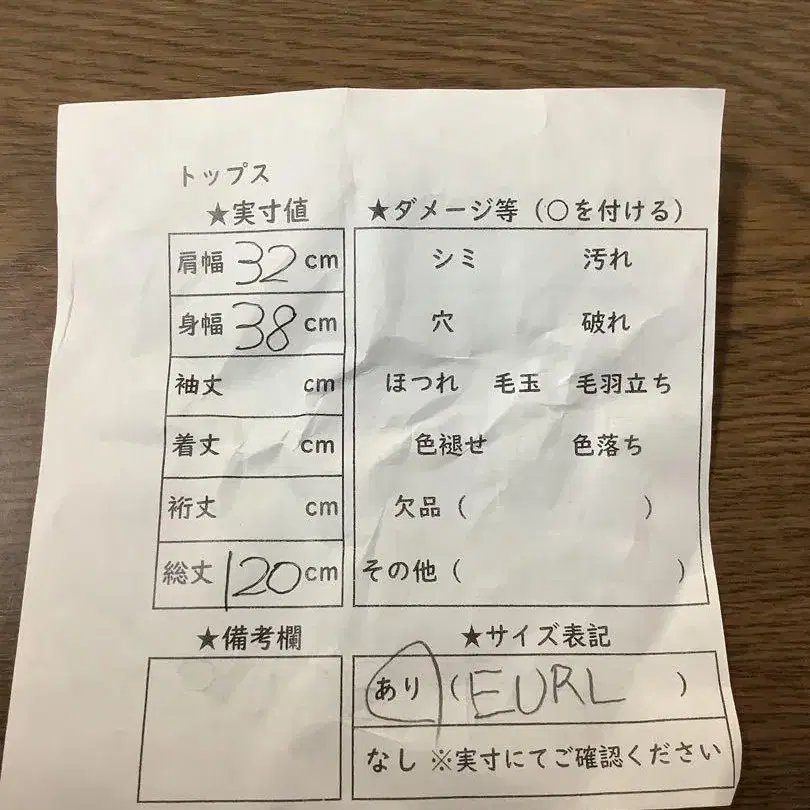 トップス
★実寸値
肩幅 32 cm
身幅 38 cm
袖丈 cm
着丈 cm
裄丈 cm
総丈 120 cm
★ダメージ等（○を付ける）
シミ 汚れ
穴 破れ
ほつれ 毛玉 毛羽立ち
色褪せ 色落ち
欠品（ ）
その他（ ）
★備考欄
★サイズ表記
あり（EURL）
なし ※実寸にてご確認ください